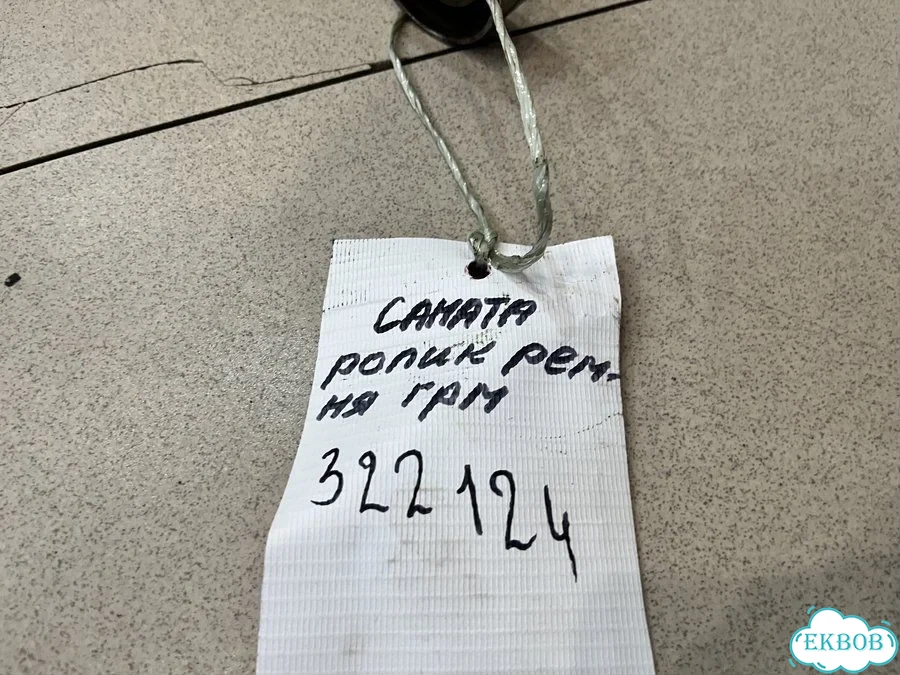 САМАТА
ролик рем-
ня ГРМ
322124
EKBOB